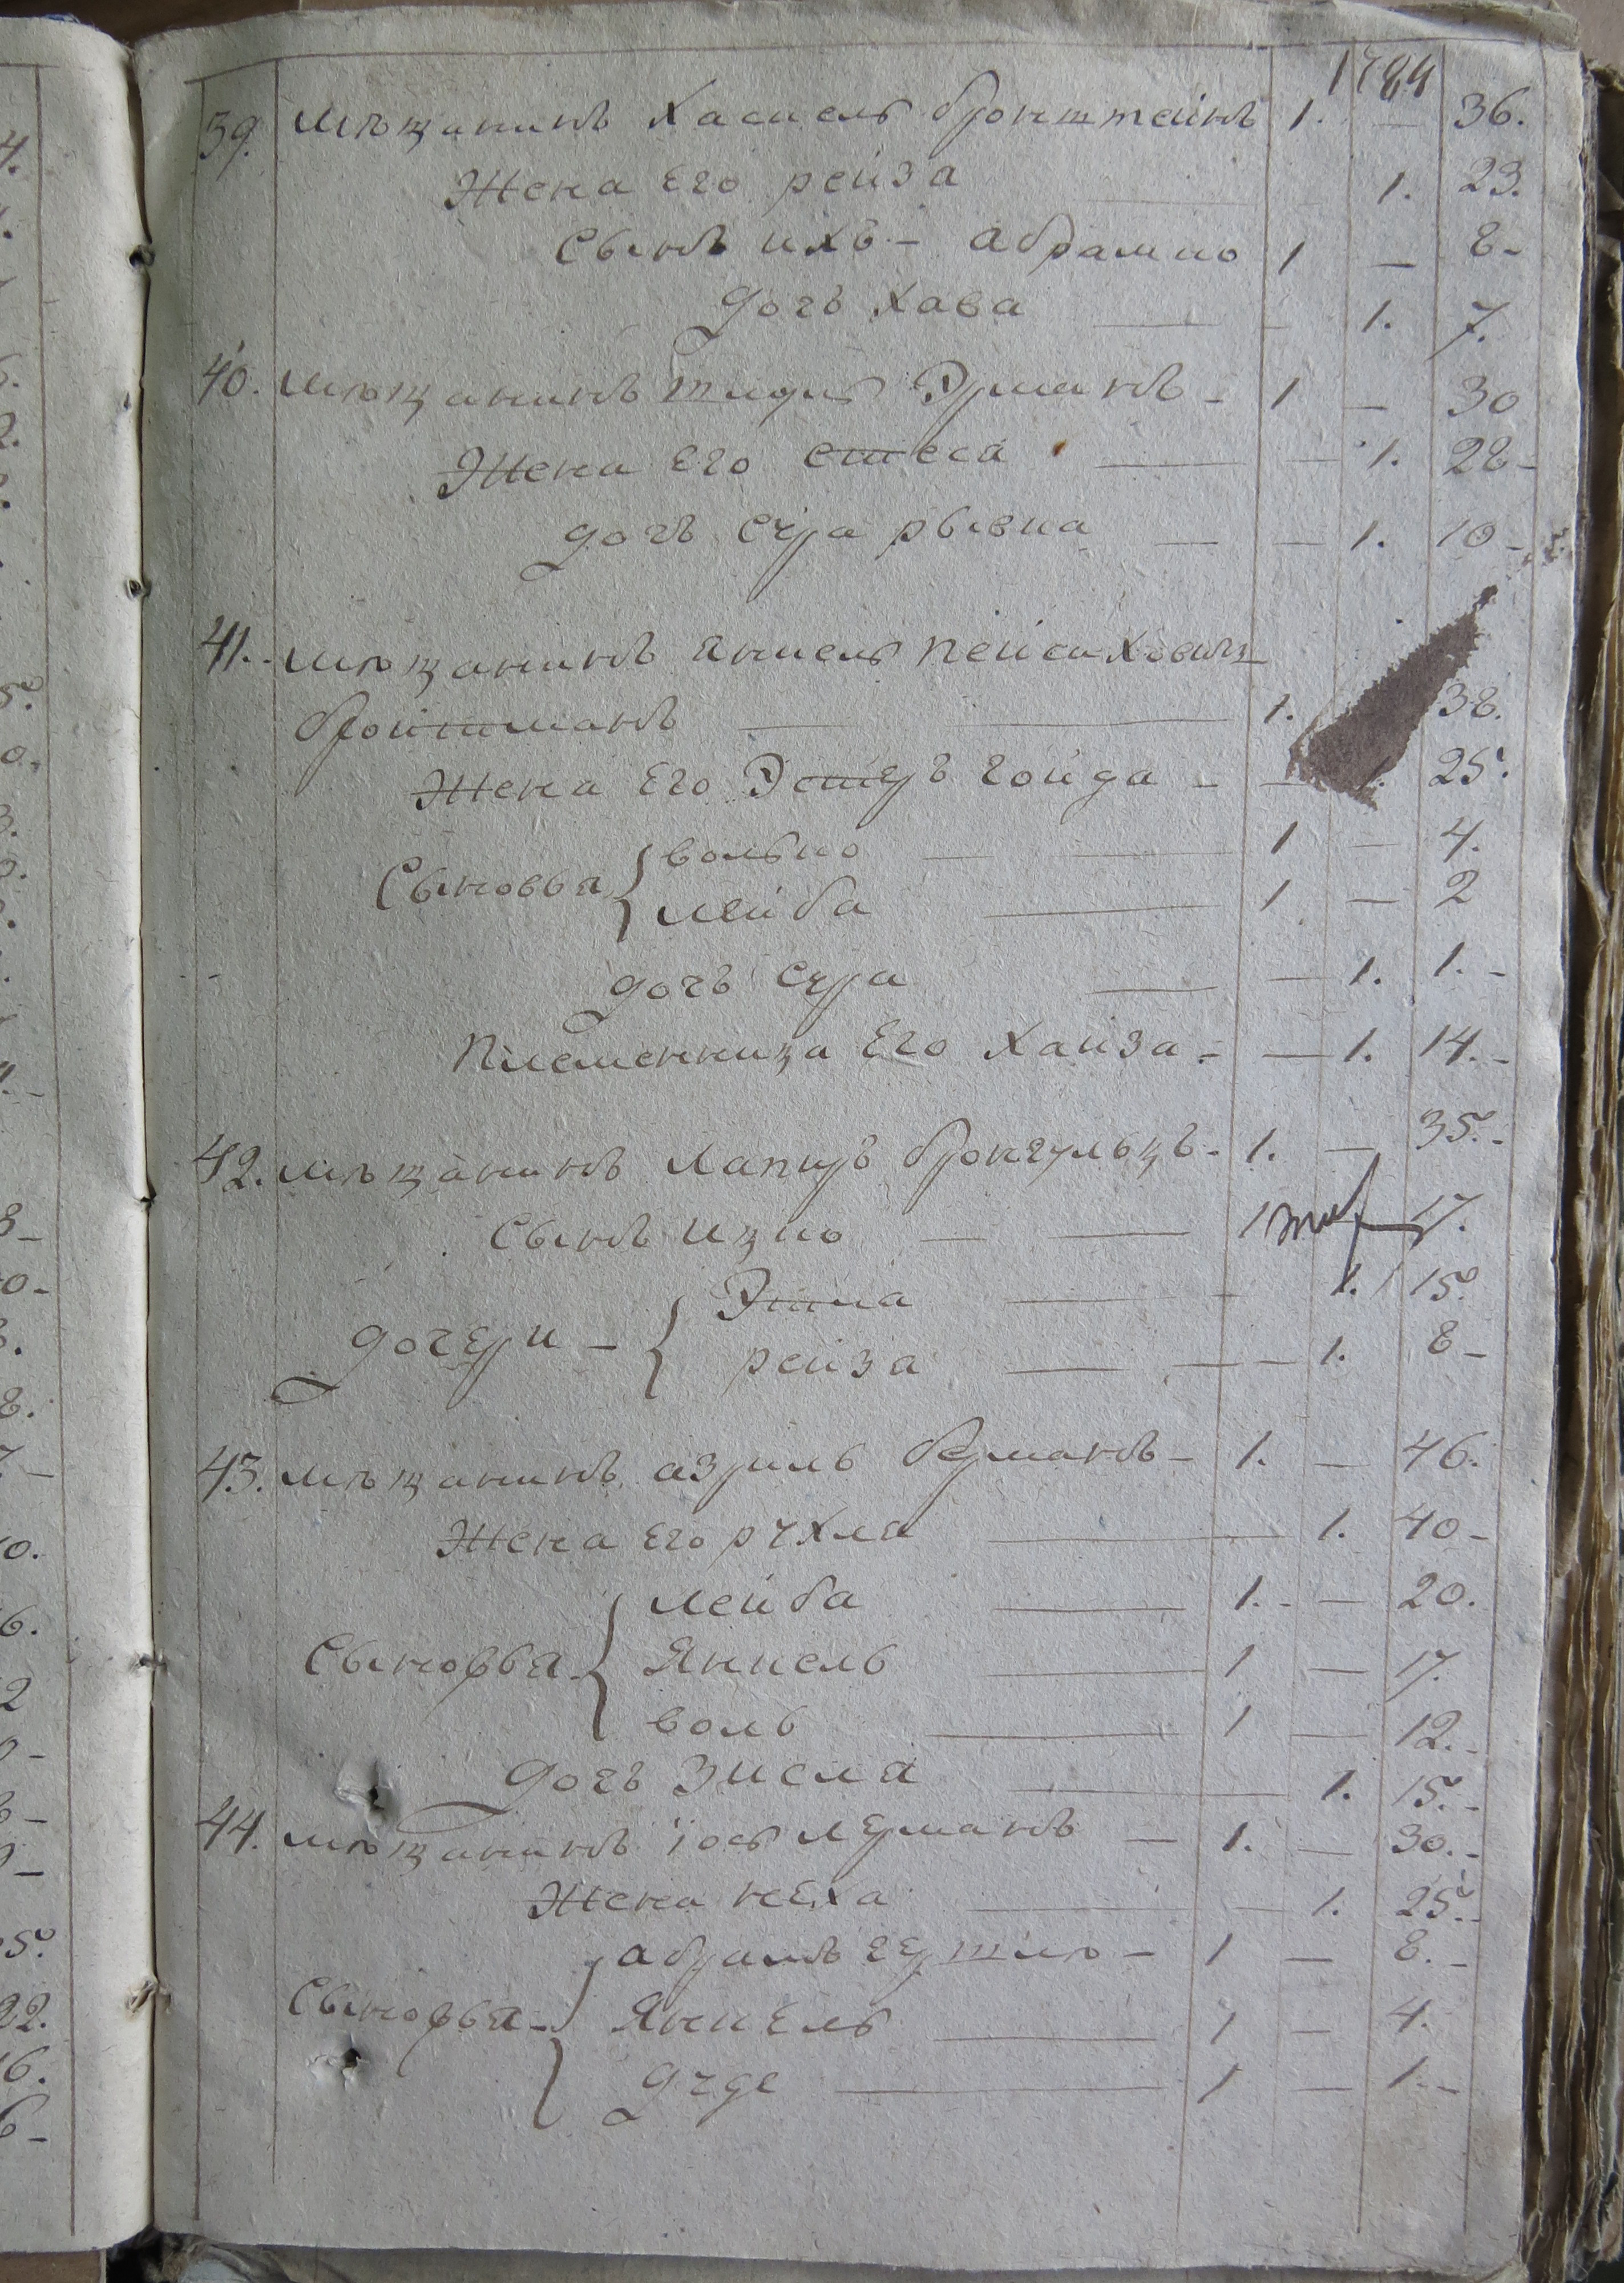 1784
39. Мѣщанинъ Хаскель бронштейнъ 1. — 36.
Жена Его рейза — 1. 23.
Сынъ ихъ – абрамко 1 — 8 –
дочь Хава — 1. 7.
40. мѣщанинъ Эрманъ – 1 — 30
Жена Его стеса — 1. 28 –
дочь сура рывка — 1. 10 –
41. мѣщанинъ янкель пейсаховичъ
1. 38.
Жена Его Эстеръ гойда – — 1. 25.
Сыновья { волько — 1 — 4.
лейба — 1 — 2
дочь сура — 1. 1. –
Племенница Его Хайза – — 1. 14. –
42. мѣщанинъ Лапиръ 1. — 35. –
сынъ ицко — 1 17.
дочери – { Этла — 1. 15.
рейза — 1. 8 –
43. мѣщанинъ азриль берманъ – 1. — 46.
Жена Его рухля — 1. 40 –
Сыновья { лейба — 1. – — 20.
Янкель — 1 — 17.
воль — 1 — 12. –
дочь Зисля — 1. 15. –
44. мѣщанинъ іось лерманъ — 1. — 30. –
Жена неха — 1. 25. –
абрамъ гершко – 1 — 8. –
Сыновья – { Янкель — 1 — 4.
дуде — 1 — 1. –